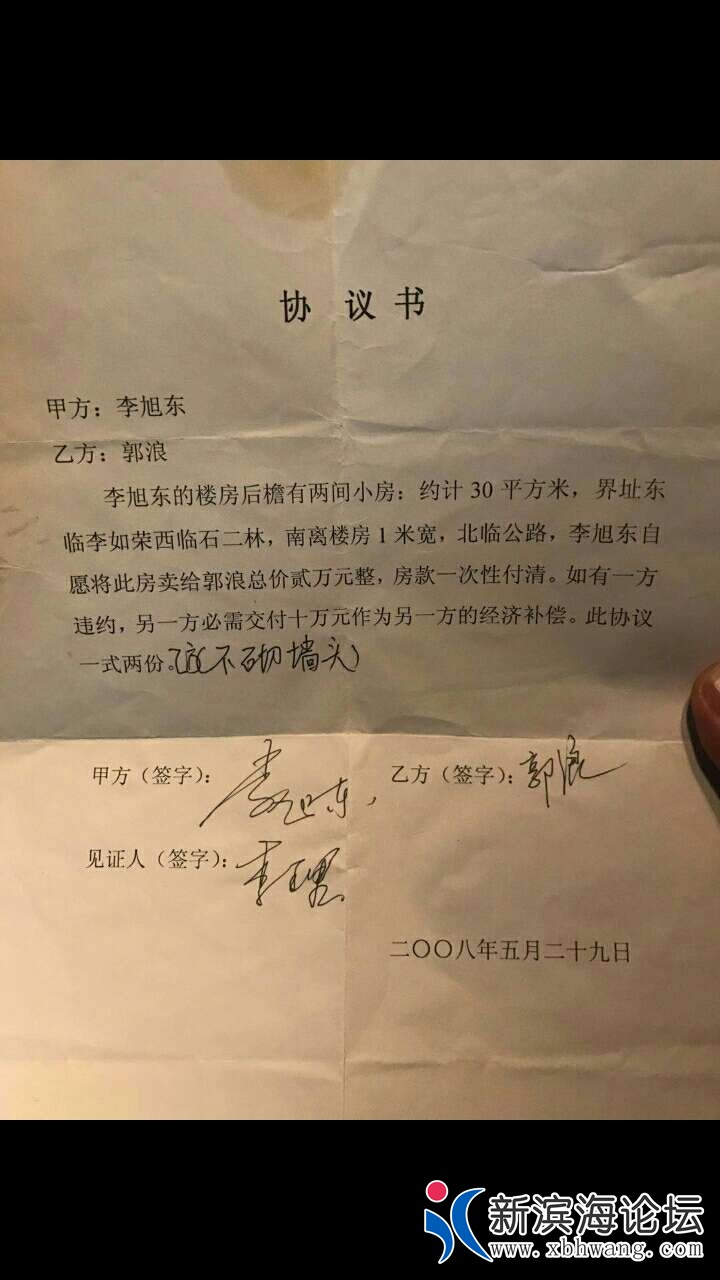 协 议 书
甲方：李旭东
乙方：郭浪
李旭东的楼房后檐有两间小房：约计30平方米，界址东
临李如荣西临石二林，南离楼房1米宽，北临公路，李旭东自
愿将此房卖给郭浪总价贰万元整，房款一次性付清。如有一方
违约，另一方必需交付十万元作为另一方的经济补偿。此协议
一式两份。(不砌墙头)
甲方（签字）：李旭东 乙方（签字）：郭浪
见证人（签字）：李
二〇〇八年五月二十九日
新滨海论坛
www.xbhwang.com